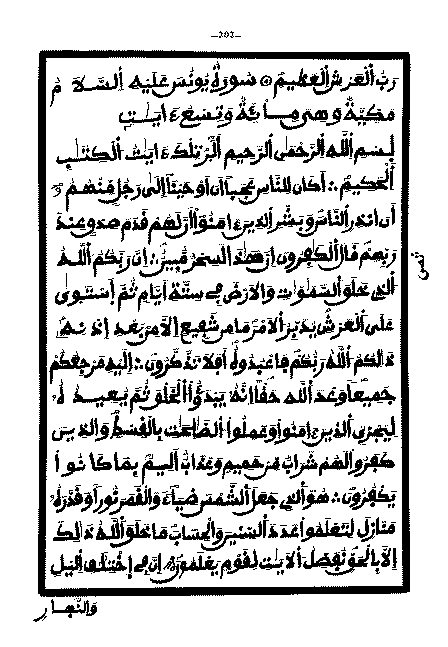 -202-
رب العرش العظيم سورة يونس عليه السلام
مكية وهى مائة وتسع ءايات
بسم الله الرحمن الرحيم الر تلك ءايت الكتب
الحكيم أكان للناس عجبا ان اوحينا إلى رجل منهم
أن انذر الناس وبشر الذين ءامنوا أن لهم قدم صدق عند
ربهم قال الكفرون إن هذا لسحر مبين إن ربكم الله
الذى خلق السموات والارض فى ستة أيام ثم استوى
على العرش يدبر الامر ما من شفيع الا من بعد إذنه
ذلكم الله ربكم فاعبدوه أفلا تذكرون إليه مرجعكم
جميعا وعد الله حقا انه يبدؤا الخلق ثم يعيده
ليجزى الذين ءامنوا وعملوا الصلحت بالقسط والذين
كفروا لهم شراب من حميم وعذاب اليم بما كانوا
يكفرون هو الذى جعل الشمس ضياء والقمر نورا وقدره
منازل لتعلموا عدد السنين والحساب ما خلق الله ذلك
إلا بالحق نفصل الايت لقوم يعلمون إن فى اختلف اليل
والنهار
ثمن